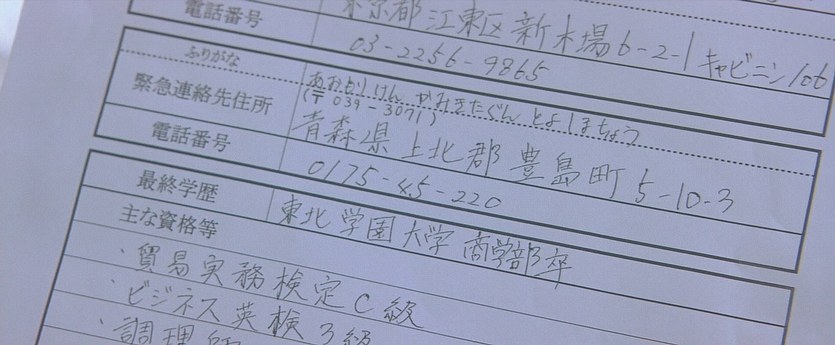 東京都江東区新木場6-2-1 キャビニン106
電話番号 03-2256-9865
ふりがな あおもりけん かみきたぐん とよしまちょう
緊急連絡先住所 (〒039-3071)
青森県上北郡豊島町5-10-3
電話番号 0175-45-220
最終学歴 東北学園大学 商学部卒
主な資格等
・貿易実務検定C級
・ビジネス英検3級
・調理師